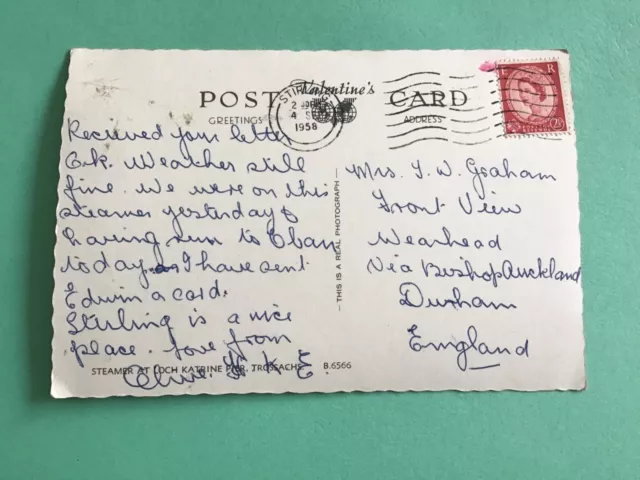 POST CARD
Valentine's
GREETINGS
ADDRESS
STIRLING
1958
R
Received your letter
O.k. Weather still
fine. We were on this
steamer yesterday &
having run to Oban
today I have sent
Edwin a card.
Stirling is a nice
place. Love from
Olive. H. K. E.
STEAMER AT LOCH KATRINE PIER, TROSSACHS B.6566
— THIS IS A REAL PHOTOGRAPH —
Mrs. J. W. Graham
Front View
Wearhead
Via Bishop Auckland
Durham
England